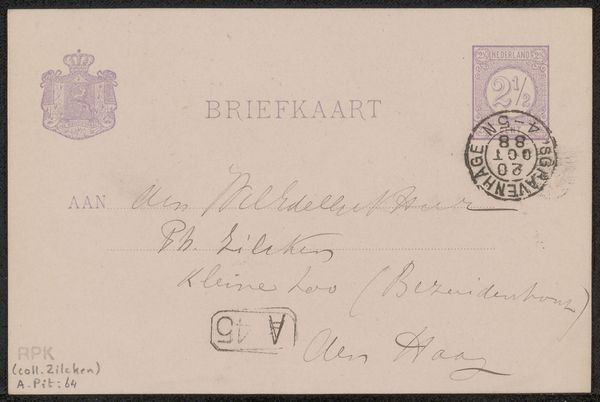 NEDERLAND
2½
BRIEFKAART
'SGRAVENHAGE
20
OCT
88
4-5N
AAN den WelEdelen Heer
Ph. Zilcken
Kleine Loo (Bezuidenhout)
A 45
den Haag
RPK
(coll. Zilcken)
A. Pit: 64